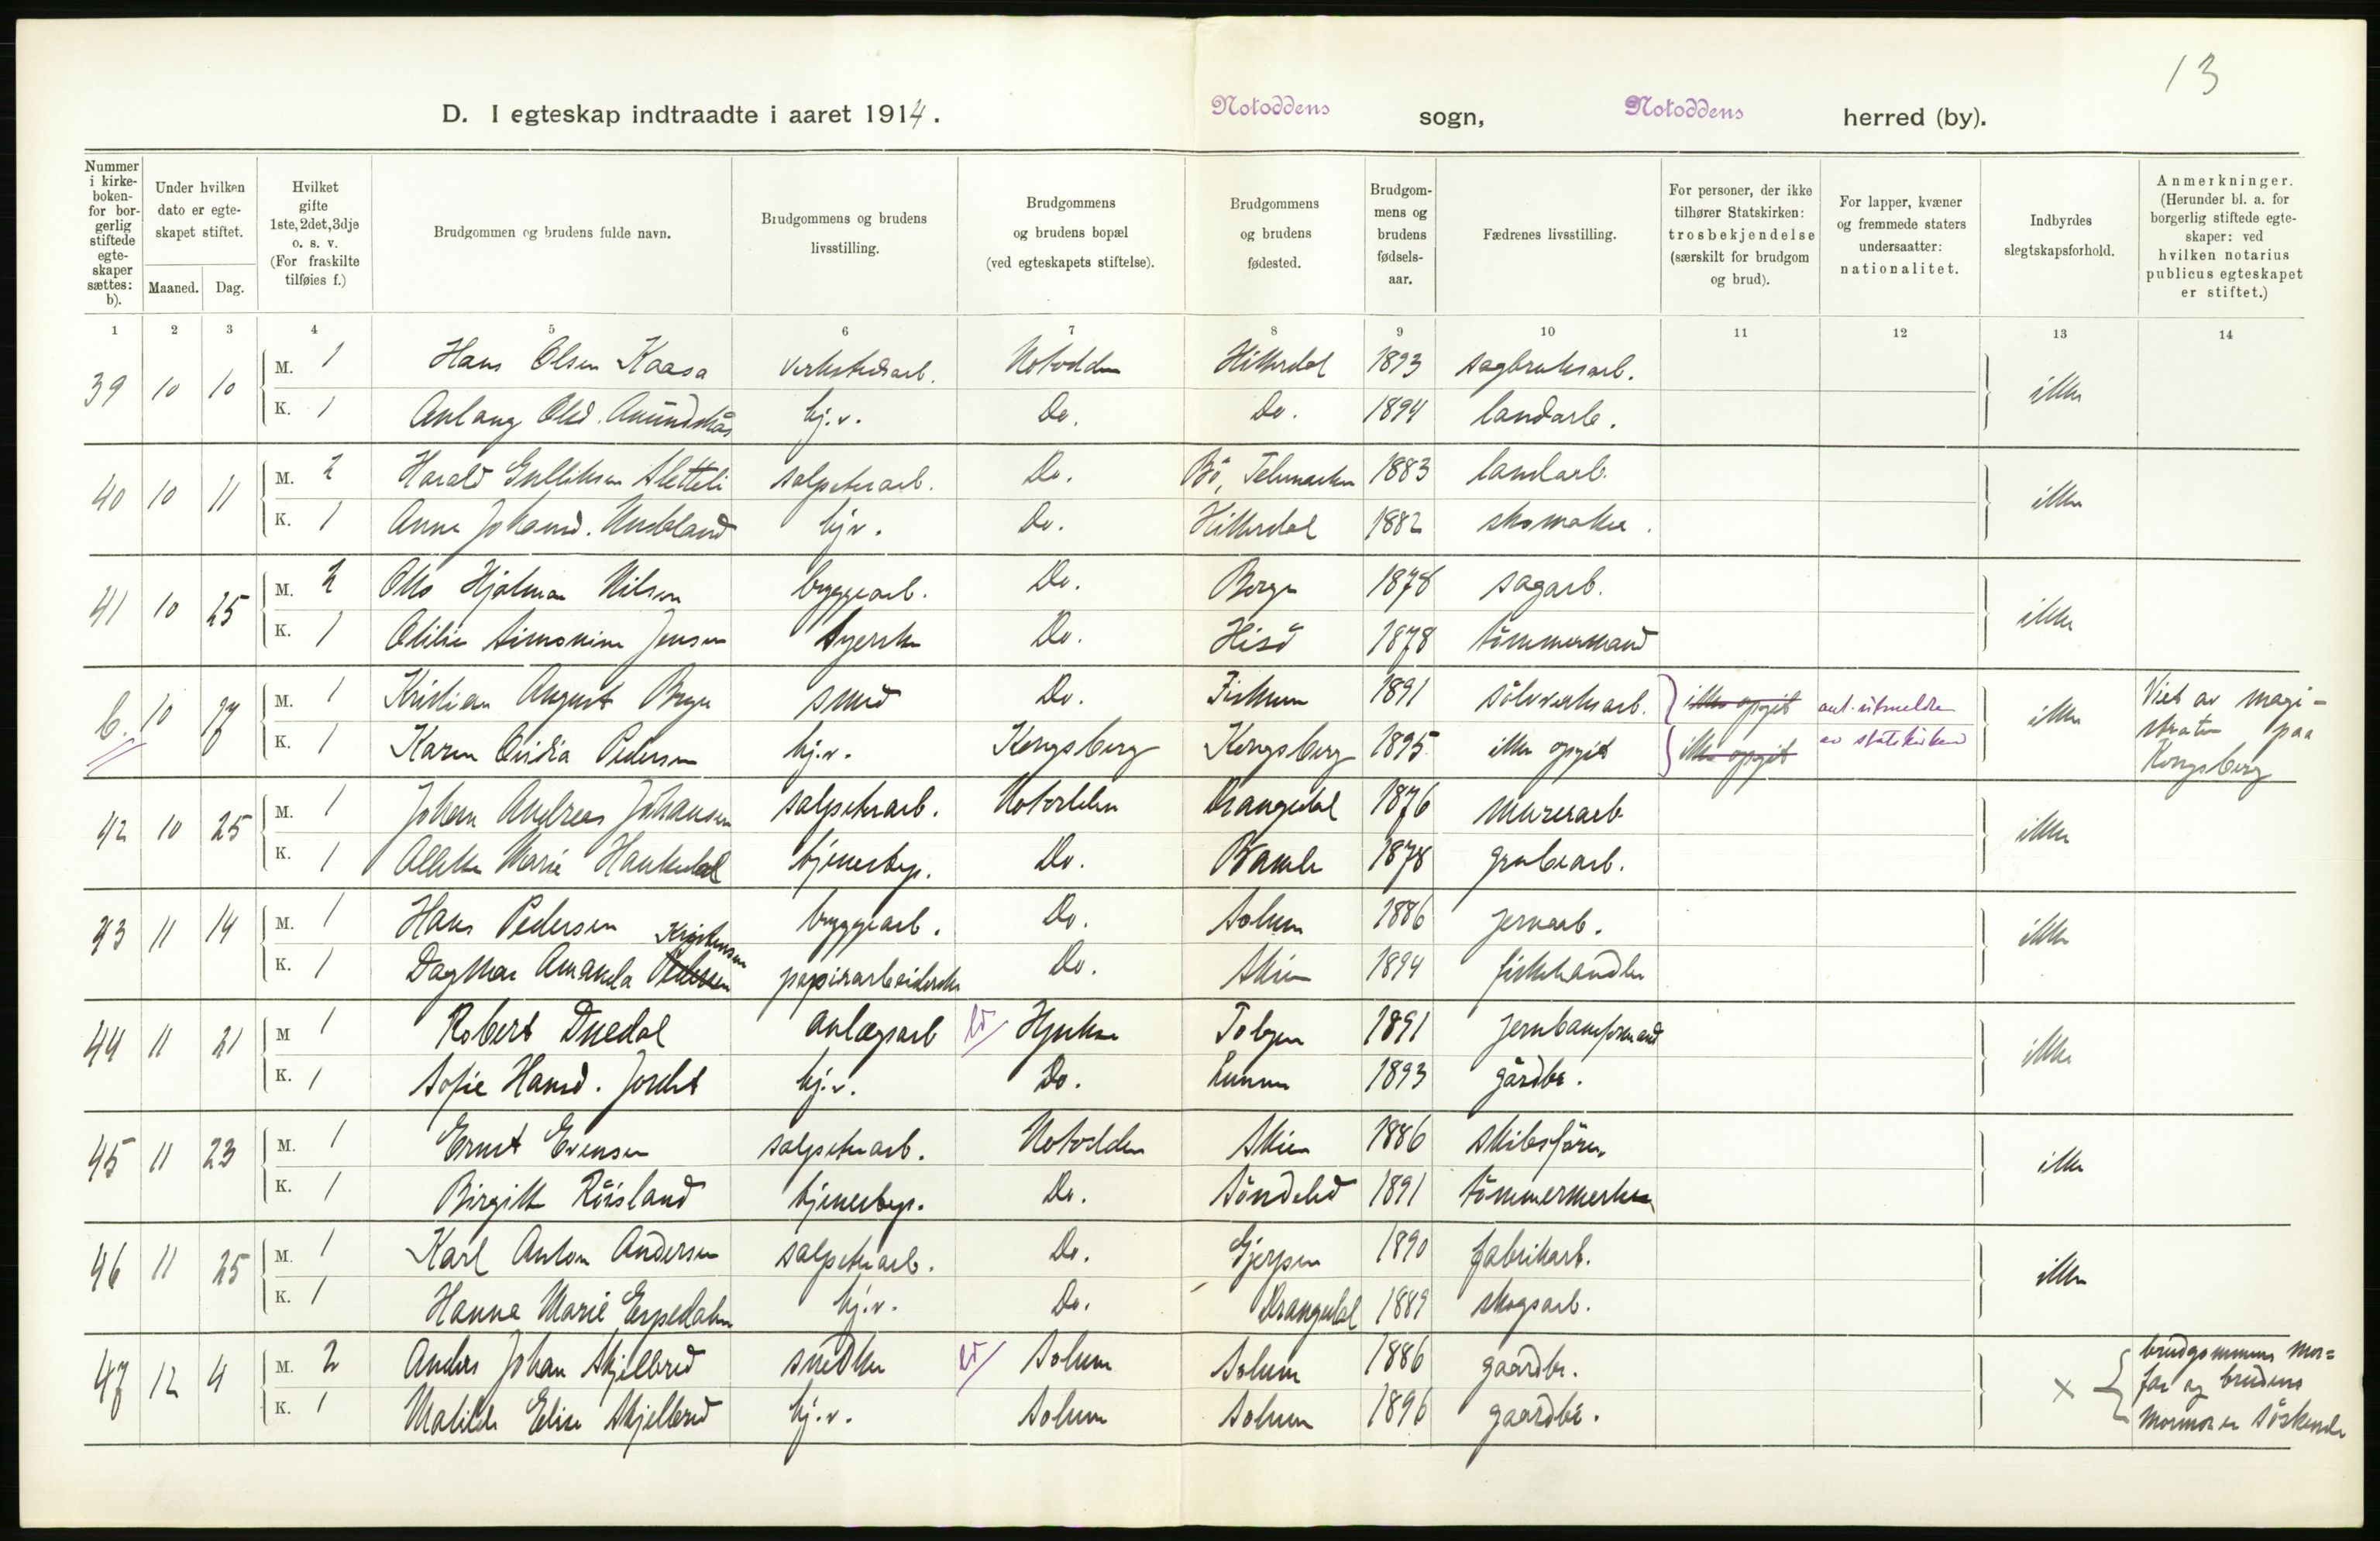 13
D. I egteskap indtraadte i aaret 1914. Notoddens sogn, Notoddens herred (by).
Nummer i kirke-boken- for bor-gerlig stiftede egte-skaper sættes: b).
Under hvilken dato er egte-skapet stiftet.
Maaned. Dag.
Hvilket gifte 1ste, 2det, 3dje o. s. v. (For fraskilte tilføies f.)
Brudgommen og brudens fulde navn.
Brudgommens og brudens livsstilling.
Brudgommens og brudens bopæl (ved egteskapets stiftelse).
Brudgommens og brudens fødested.
Brudgom-mens og brudens fødsels-aar.
Fædrenes livsstilling.
For personer, der ikke tilhører Statskirken: trosbekjendelse (særskilt for brudgom og brud).
For lapper, kvæner og fremmede staters undersaatter: nationalitet.
Indbyrdes slegtskapsforhold.
Anmerkninger. (Herunder bl. a. for borgerlig stiftede egte-skaper: ved hvilken notarius publicus egteskapet er stiftet.)
1 2 3 4 5 6 7 8 9 10 11 12 13 14
39 10 10 M. 1 Hans Olsen Kaasa verkstedsarb. Notodden Hitterdal 1893 sagbruksarb. ikke
K. 1 Anlaug Olsd. hj.v. Do. Do. 1894 landarb.
40 10 11 M. 2 Harald Gulliksen Sletteli salpeterarb. Do. Bö, Telemarken 1883 landarb. ikke
K. 1 Anna Johansd. hj.v. Do. Hitterdal 1882 skomaker.
41 10 25 M. 2 Otto Hjalmar Nilsen byggearb. Do. Berge 1878 sagarb. ikke
K. 1 Otilie Simonine Jensen Syerske Do. Hisö 1878 tömmermand
b. 10 17 M. 1 Kristian August Smed Do. Fiskum 1891 sölvverksarb. ikke opgit ant. utmeldt ikke Viet av magi-
K. 1 Karen Ovidia Pedersen hj.v. Kongsberg Kongsberg 1895 ikke opgit ikke opgit av statskirken straten paa
Kongsberg
42 10 25 M. 1 Johan Andreas Johansen salpeterarb. Notodden Drangedal 1876 murerarb. ikke
K. 1 Marie tjenestep. Do. Bamle 1878 grubearb.
43 11 14 M. 1 Hans Pedersen byggearb. Do. Solum 1886 jernarb. ikke
Kristensen
K. 1 Dagmar Amanda Pedersen papirarbeiderske Do. Skien 1894 fiskehandler
44 11 21 M 1 Robert Duedal anlægsarb Hjuksa Tolgen 1891 jernbaneformand ikke
K. 1 Sofie Hansd. hj.v. Do. Lunner 1893 gårdbr.
45 11 23 M. 1 Ernst Evensen salpeterarb. Notodden Skien 1886 skibsförer ikke
K. 1 Birgitte Röisland tjenestep. Do. Söndeled 1891 tömmermerker
46 11 25 M. 1 Karl Anton Andersen salpeterarb. Do. Gjerpen 1890 fabrikarb. ikke
K. 1 Hanna Marie Espedalen hj.v. Do. Drangedal 1889 skogsarb.
47 12 4 M. 2 Anders Johan Skjelbred snedker Solum Solum 1886 gaardbr. × brudgommens mor=
K. 1 Matilde Elise Skjelbred hj.v. Solum Solum 1896 gaardbr. far og brudens
mormor er söskende